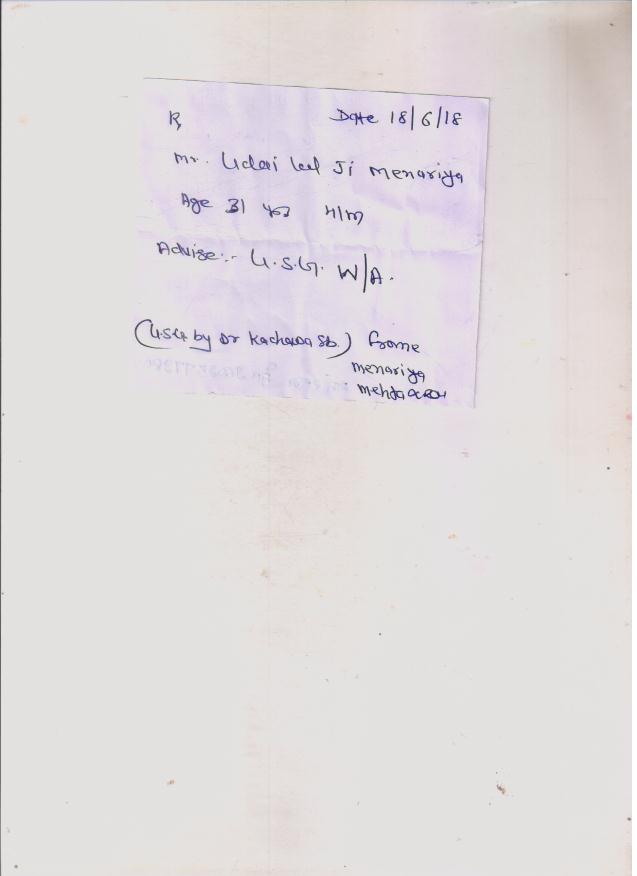 Rx
Date 18/6/18
Mr. Udai Lal Ji Menariya
Age 31 H/M
Advise:- U.S.G. W/A.
(U.S.G by Dr Kachawa Sb.) frome
menariya